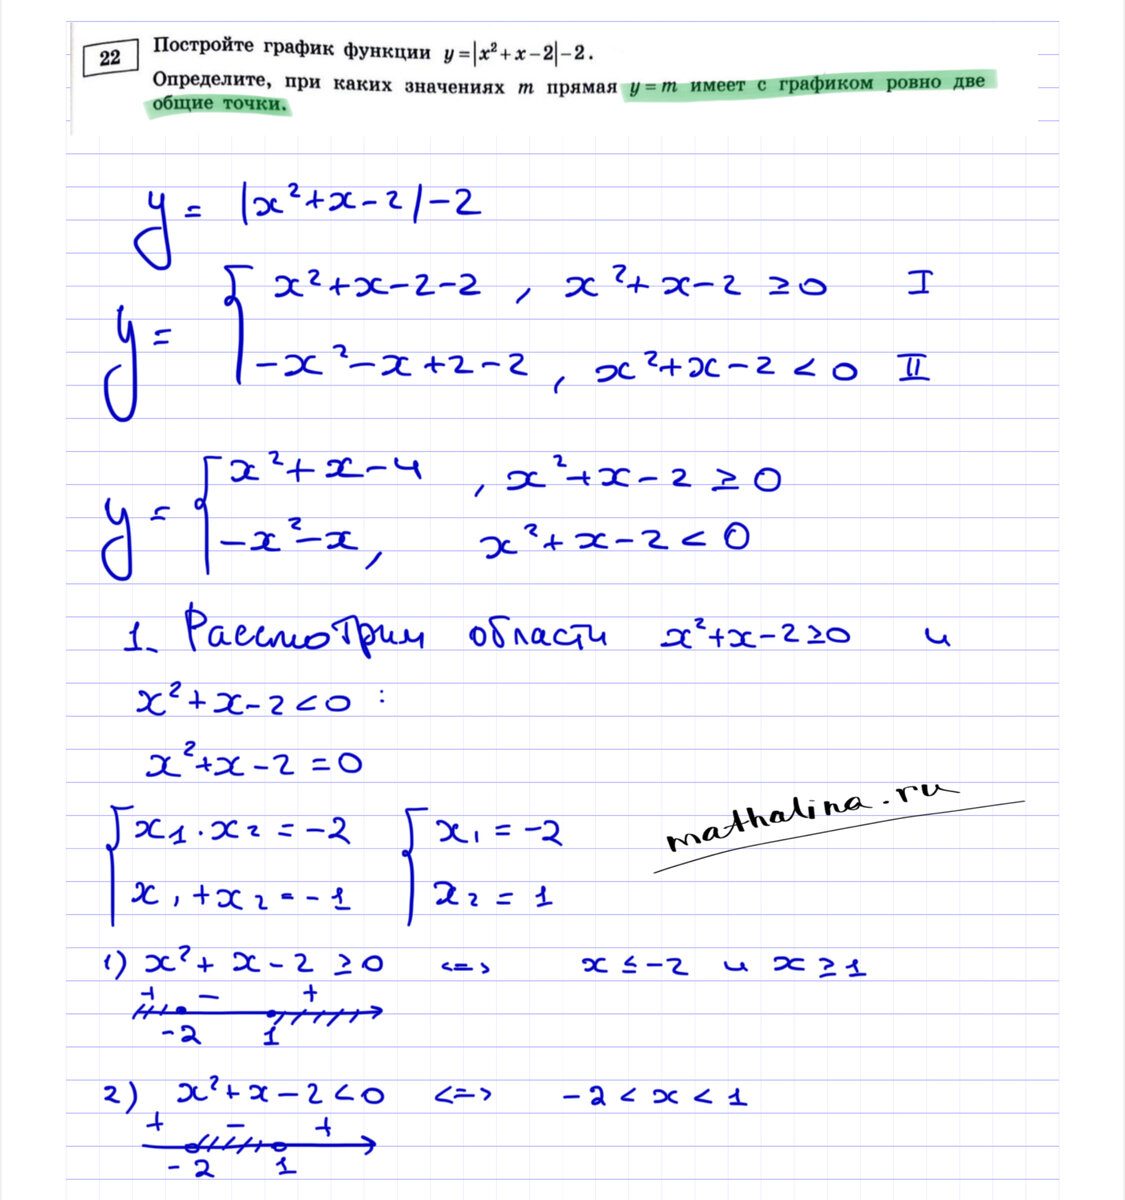 22 Постройте график функции y=|x²+x−2|−2.
Определите, при каких значениях m прямая y=m имеет с графиком ровно две
общие точки.
y = |x²+x−2|−2
y = { x²+x−2−2 , x²+x−2 ≥0 I
−x²−x+2−2 , x²+x−2 < 0 II
y = { x²+x−4 , x²+x−2 ≥ 0
−x²−x, x²+x−2 < 0
1. Рассмотрим области x²+x−2≥0 и
x²+x−2<0 :
x²+x−2 = 0
{ x₁·x₂ = −2 { x₁ = −2
x₁+x₂ = −1 x₂ = 1
mathalina.ru
1) x²+x−2 ≥0 <=> x ≤ −2 и x ≥ 1
+ − +
−2 1
2) x²+x−2<0 <=> −2 < x < 1
+ − +
−2 1